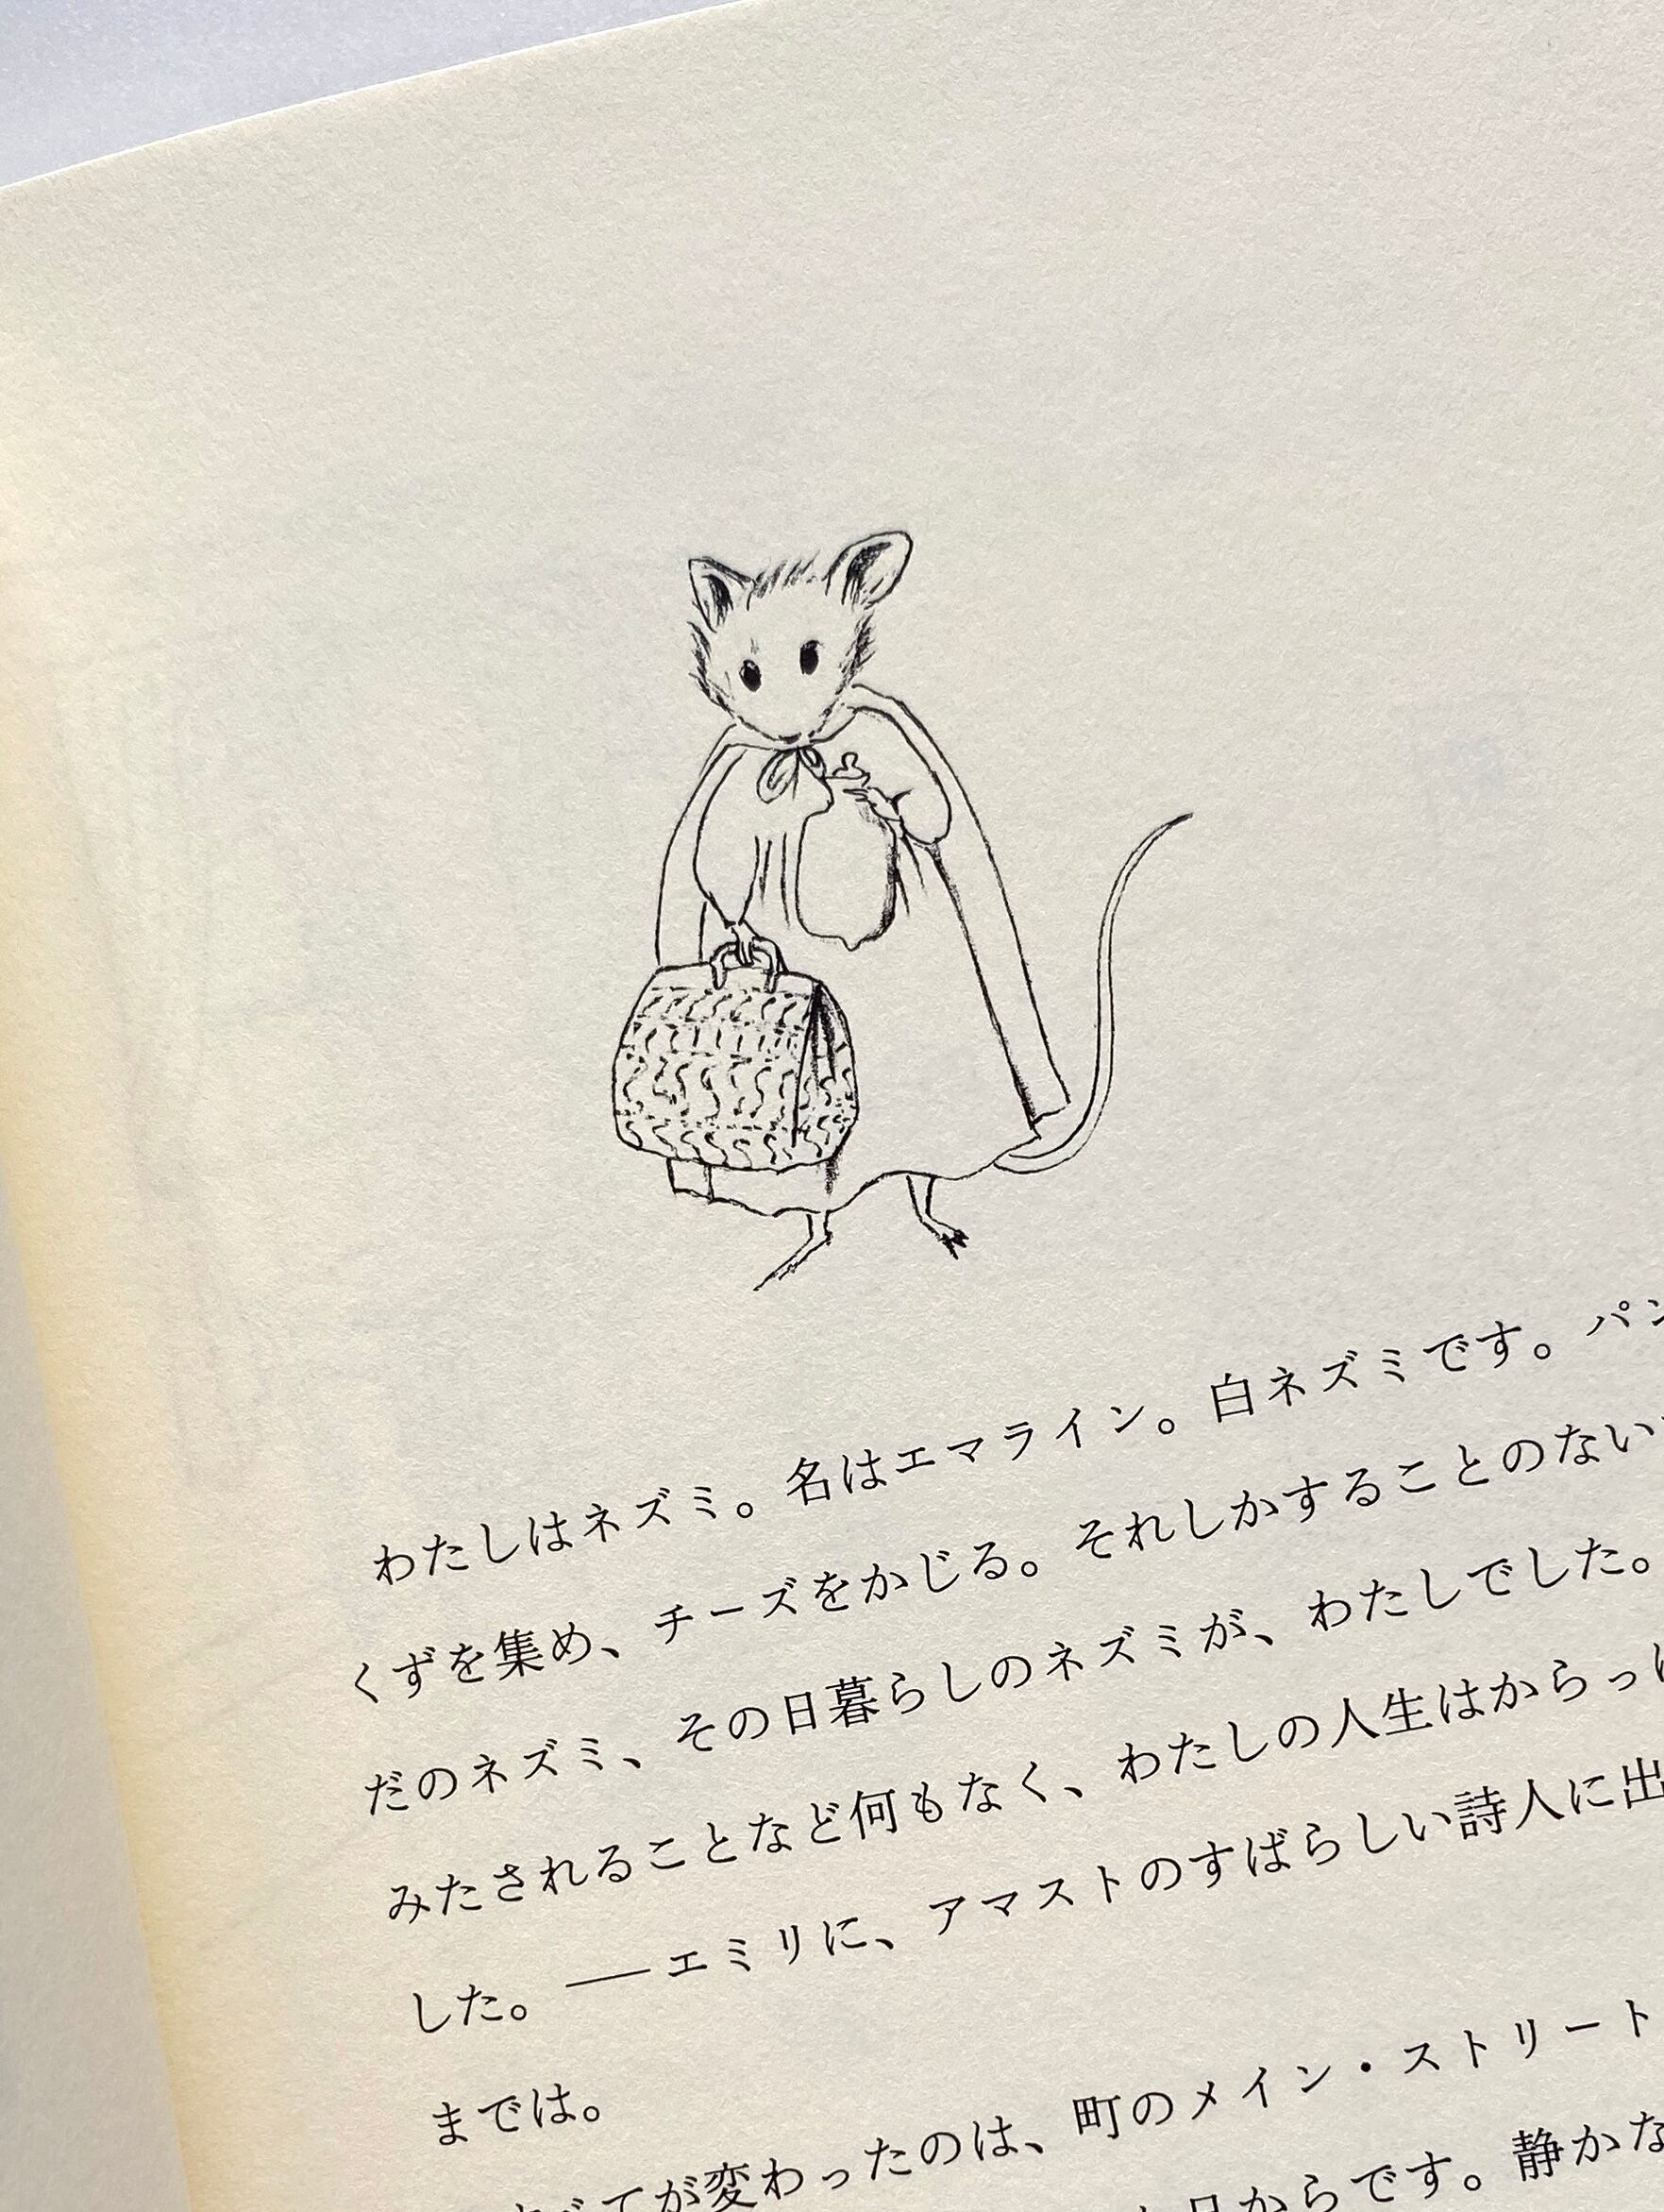 わたしはネズミ。名はエマライン。白ネズミです。パン
くずを集め、チーズをかじる。それしかすることのない
だのネズミ、その日暮らしのネズミが、わたしでした。
みたされることなど何もなく、わたしの人生はからっ
した。──エミリに、アマストのすばらしい詩人に出
までは。
てが変わったのは、町のメイン・ストリート
日からです。静かな